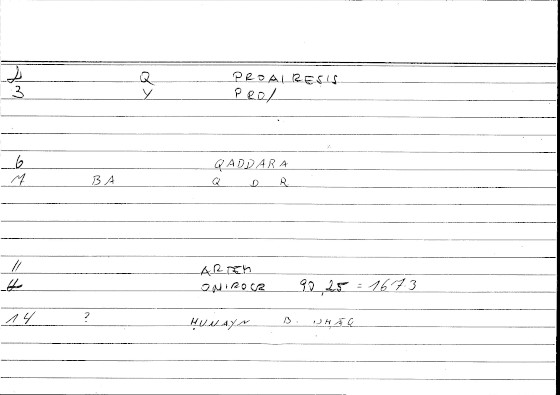 Q PROAIRESIS
3 Y PRO/
6 QADDARA
7 BA Q D R
11 ARTEM
ONIROCR 90,25 = 1673
14 ? ḤUNAYN B.